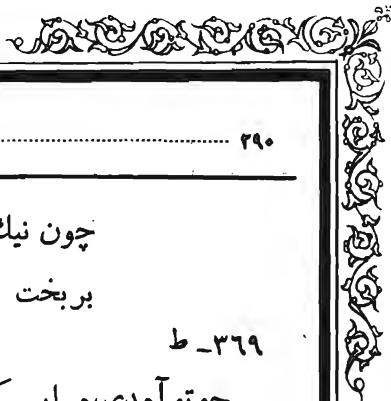 ۲۹۰
چون نیك
بر بخت
۳۶۹_ ط